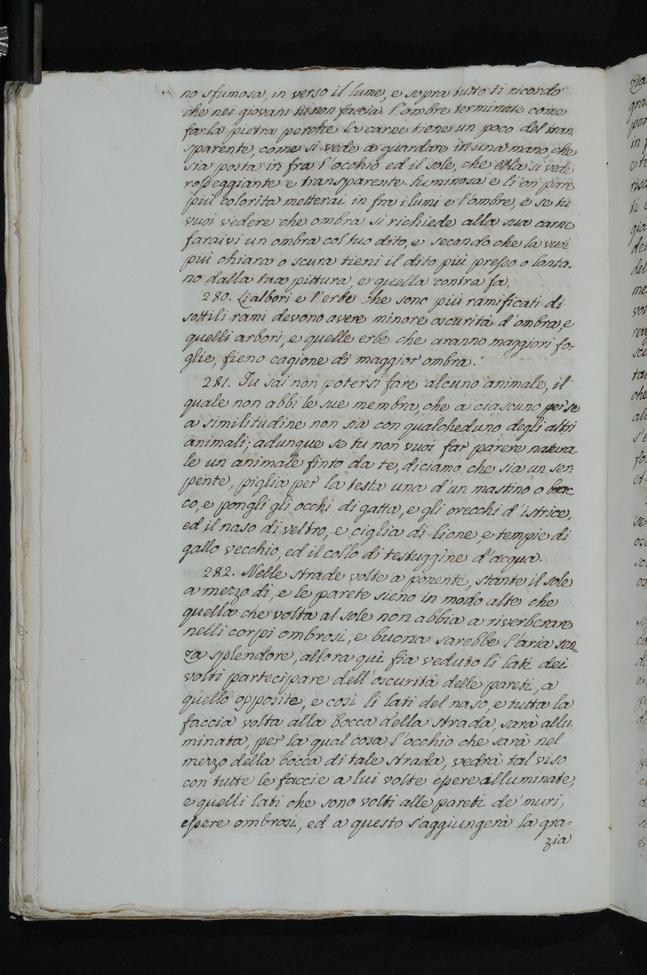 no sfumosa, in verso il lume, e sopra tutto ti ricordo
che nei giovani tu non faccia l'ombre terminate come
fa la pietra perche la carne tiene un poco del tran
sparente come si vede a guardare in una mano, che
sia posta in fra l'occhio ed il sole, che ella si vede
rosseggiante e transparente luminosa e li on pare
più colorita metterai in fra i lumi e l'ombre, e se tu
vuoi vedere che ombra si richiede alla sua carne
faraivi un ombra col tuo dito, e secondo che la vuoi
più chiara o scura tieni il dito più presso o lonta-
no dalla tua pittura, e quella contra fa.
280. Li albori e l'erbe che sono più ramificati di
sottili rami devono avere minore oscurità d'ombra, e
quelli arbori, e quelle erbe che aranno maggiori fo-
glie, fieno cagione di maggior ombra.
281. Tu sai non potersi fare alcuno animale, il
quale non abbi le sue membra, che a ciascuno per se
a similitudine non sia con qualcheduno degli altri
animali; adunque se tu non vuoi far parere natura-
le un animale finto da te, diciamo che sia un ser
pente, piglia per la testa una d'un mastino o brac-
co, e pongli gli occhi di gatta, e gli orecchi d'istrice,
ed il naso di veltro, e ciglia di lione, e tempie di
gallo vecchio, ed il collo di testuggine d'acqua.
282. Nelle strade volte a ponente, stante il sole
a mezzo dì, e le parete sieno in modo alte che
quella che volta al sole non abbia a riverberare
nelli corpi ombrosi, e buona sarebbe l'aria sen-
za splendore, allora qui fia veduto li lati dei
volti partecipare dell'oscurità delle pareti, a
quello opposite, e così li lati del naso, e tutta la
faccia volta alla bocca della strada, sarà allu
minata, per la qual cosa l'occhio che sarà nel
mezzo della bocca di tale strada, vedrà tal viso
con tutte le faccie a lui volte essere alluminate,
e quelli lati che sono volti alle pareti de' muri,
essere ombrosi, ed a questo s'aggiungerà la gra-
zia